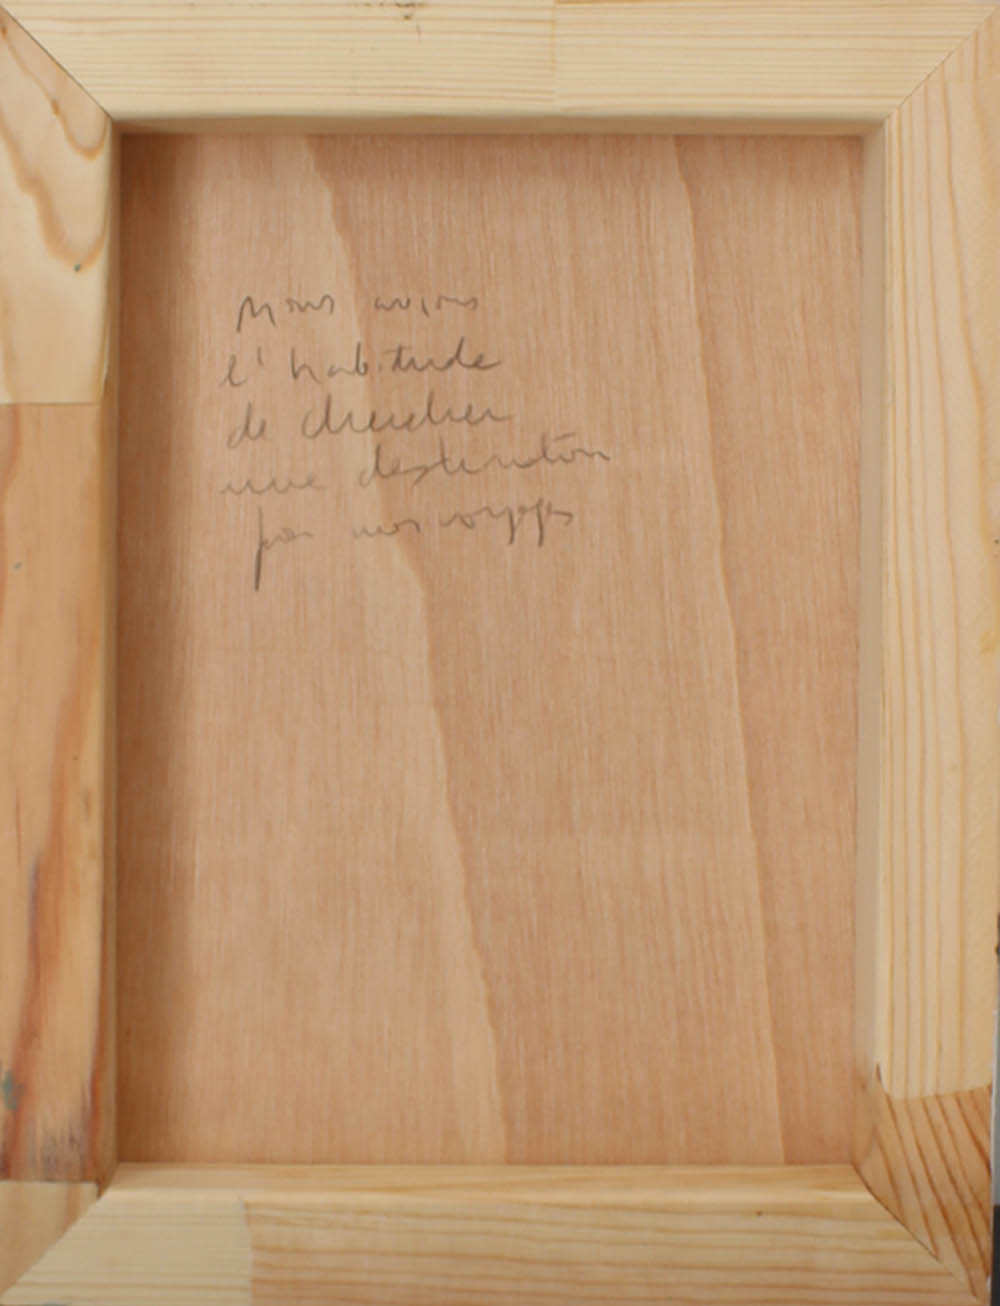 Nous avions
l'habitude
de chercher
une destination
par nos voyages